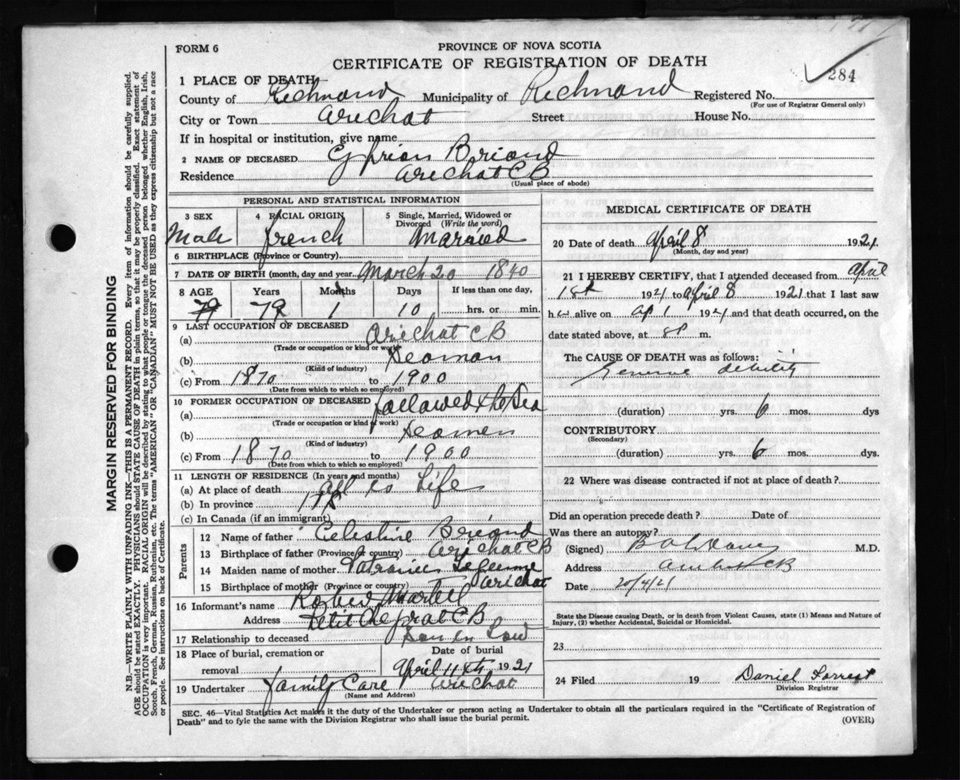 FORM 6
PROVINCE OF NOVA SCOTIA
CERTIFICATE OF REGISTRATION OF DEATH
284
1 PLACE OF DEATH
County of Richmond Municipality of Richmond Registered No.
(For use of Registrar General only)
City or Town Arichat Street House No.
If in hospital or institution, give name
2 NAME OF DECEASED Cyprian Briand
Residence Arichat CB
(Usual place of abode)
PERSONAL AND STATISTICAL INFORMATION
3 SEX
Male
4 RACIAL ORIGIN
French
5 Single, Married, Widowed or Divorced (Write the word)
Married
6 BIRTHPLACE (Province or Country)
7 DATE OF BIRTH (month, day and year) March 20 1840
8 AGE Years Months Days If less than one day,
79 79 1 10 hrs. or min.
9 LAST OCCUPATION OF DECEASED
(a) Arichat CB
(Trade or occupation or kind of work)
(b) Seaman
(Kind of industry)
(c) From 1870 to 1900
(Date from which to which so employed)
10 FORMER OCCUPATION OF DECEASED
(a) Followed the Sea
(Trade or occupation or kind of work)
(b) Seamen
(Kind of industry)
(c) From 1870 1900
(Date from which to which so employed)
11 LENGTH OF RESIDENCE (In years and months)
(a) At place of death all his Life
(b) In province
(c) In Canada (if an immigrant)
Parents
12 Name of father Celestine Briand
13 Birthplace of father (Province or country) Arichat CB
14 Maiden name of mother
15 Birthplace of mother (Province or country) Arichat
16 Informant's name Robert Martell
Address Petit de grat CB
17 Relationship to deceased Son in Law
18 Place of burial, cremation or removal
Date of burial
April 11th 1921
19 Undertaker Family Care Arichat
(Name and Address)
MEDICAL CERTIFICATE OF DEATH
20 Date of death April 8 1921
(Month, day and year)
21 I HEREBY CERTIFY, that I attended deceased from April
1st 1921 to April 8 1921 that I last saw
h alive on Ap 1 1921 and that death occurred, on the
date stated above, at 8P m.
The CAUSE OF DEATH was as follows:
General debility
(duration) yrs. 6 mos. dys
CONTRIBUTORY
(Secondary)
(duration) yrs. 6 mos. dys.
22 Where was disease contracted if not at place of death?
Did an operation precede death? Date of
Was there an autopsy?
(Signed) M.D.
Address Arichat CB
Date 20/4/21
State the Disease causing Death, or in death from Violent Causes, state (1) Means and Nature of Injury, (2) whether Accidental, Suicidal or Homicidal.
23
24 Filed 19 Daniel Forrest
Division Registrar
SEC. 46—Vital Statistics Act makes it the duty of the Undertaker or person acting as Undertaker to obtain all the particulars required in the "Certificate of Registration of
Death" and to fyle the same with the Division Registrar who shall issue the burial permit.
(OVER)
MARGIN RESERVED FOR BINDING
N.B.—WRITE PLAINLY WITH UNFADING INK—THIS IS A PERMANENT RECORD. Every item of information should be carefully supplied.
AGE should be stated EXACTLY. PHYSICIANS should STATE CAUSE OF DEATH in plain terms, so that it may be properly classified. Exact statement of
OCCUPATION is very important. RACIAL ORIGIN will be described by stating to what people or tongue the deceased person belonged whether English, Irish,
Scotch, French, German, Russian, Ruthenian, etc. The terms "AMERICAN" OR "CANADIAN" MUST NOT BE USED as they express citizenship but not a race
or people. See instructions on back of Certificate.